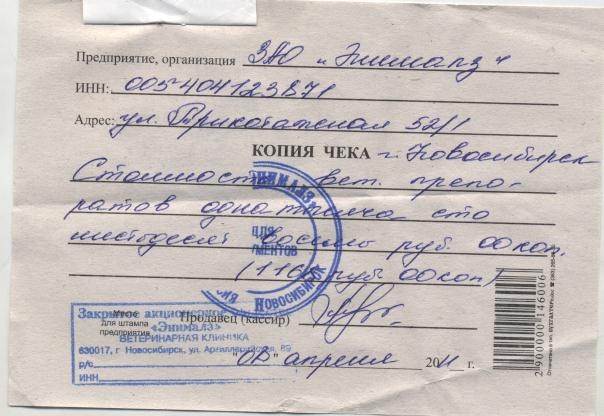 Предприятие, организация ЗАО "Энималз"
ИНН: 005404123871
Адрес: ул. Трикотажная 52/1
КОПИЯ ЧЕКА г. Новосибирск
Стоимость вет. препа-
ратов одна тысяча сто
шестьдесят восемь руб. 00 коп.
(1168 руб. 00 коп)
ЭНИМАЛЗ
ДЛЯ
НОВОСИБИРСК
Закрытое акционерное
«Энималз»
Продавец (кассир)
Для штампа
предприятия
ВЕТЕРИНАРНАЯ КЛИНИКА
630017, г Новосибирск, ул. Артиллерийская, 89
р/с
ИНН
"08" апреля 2011 г.
2900000146006